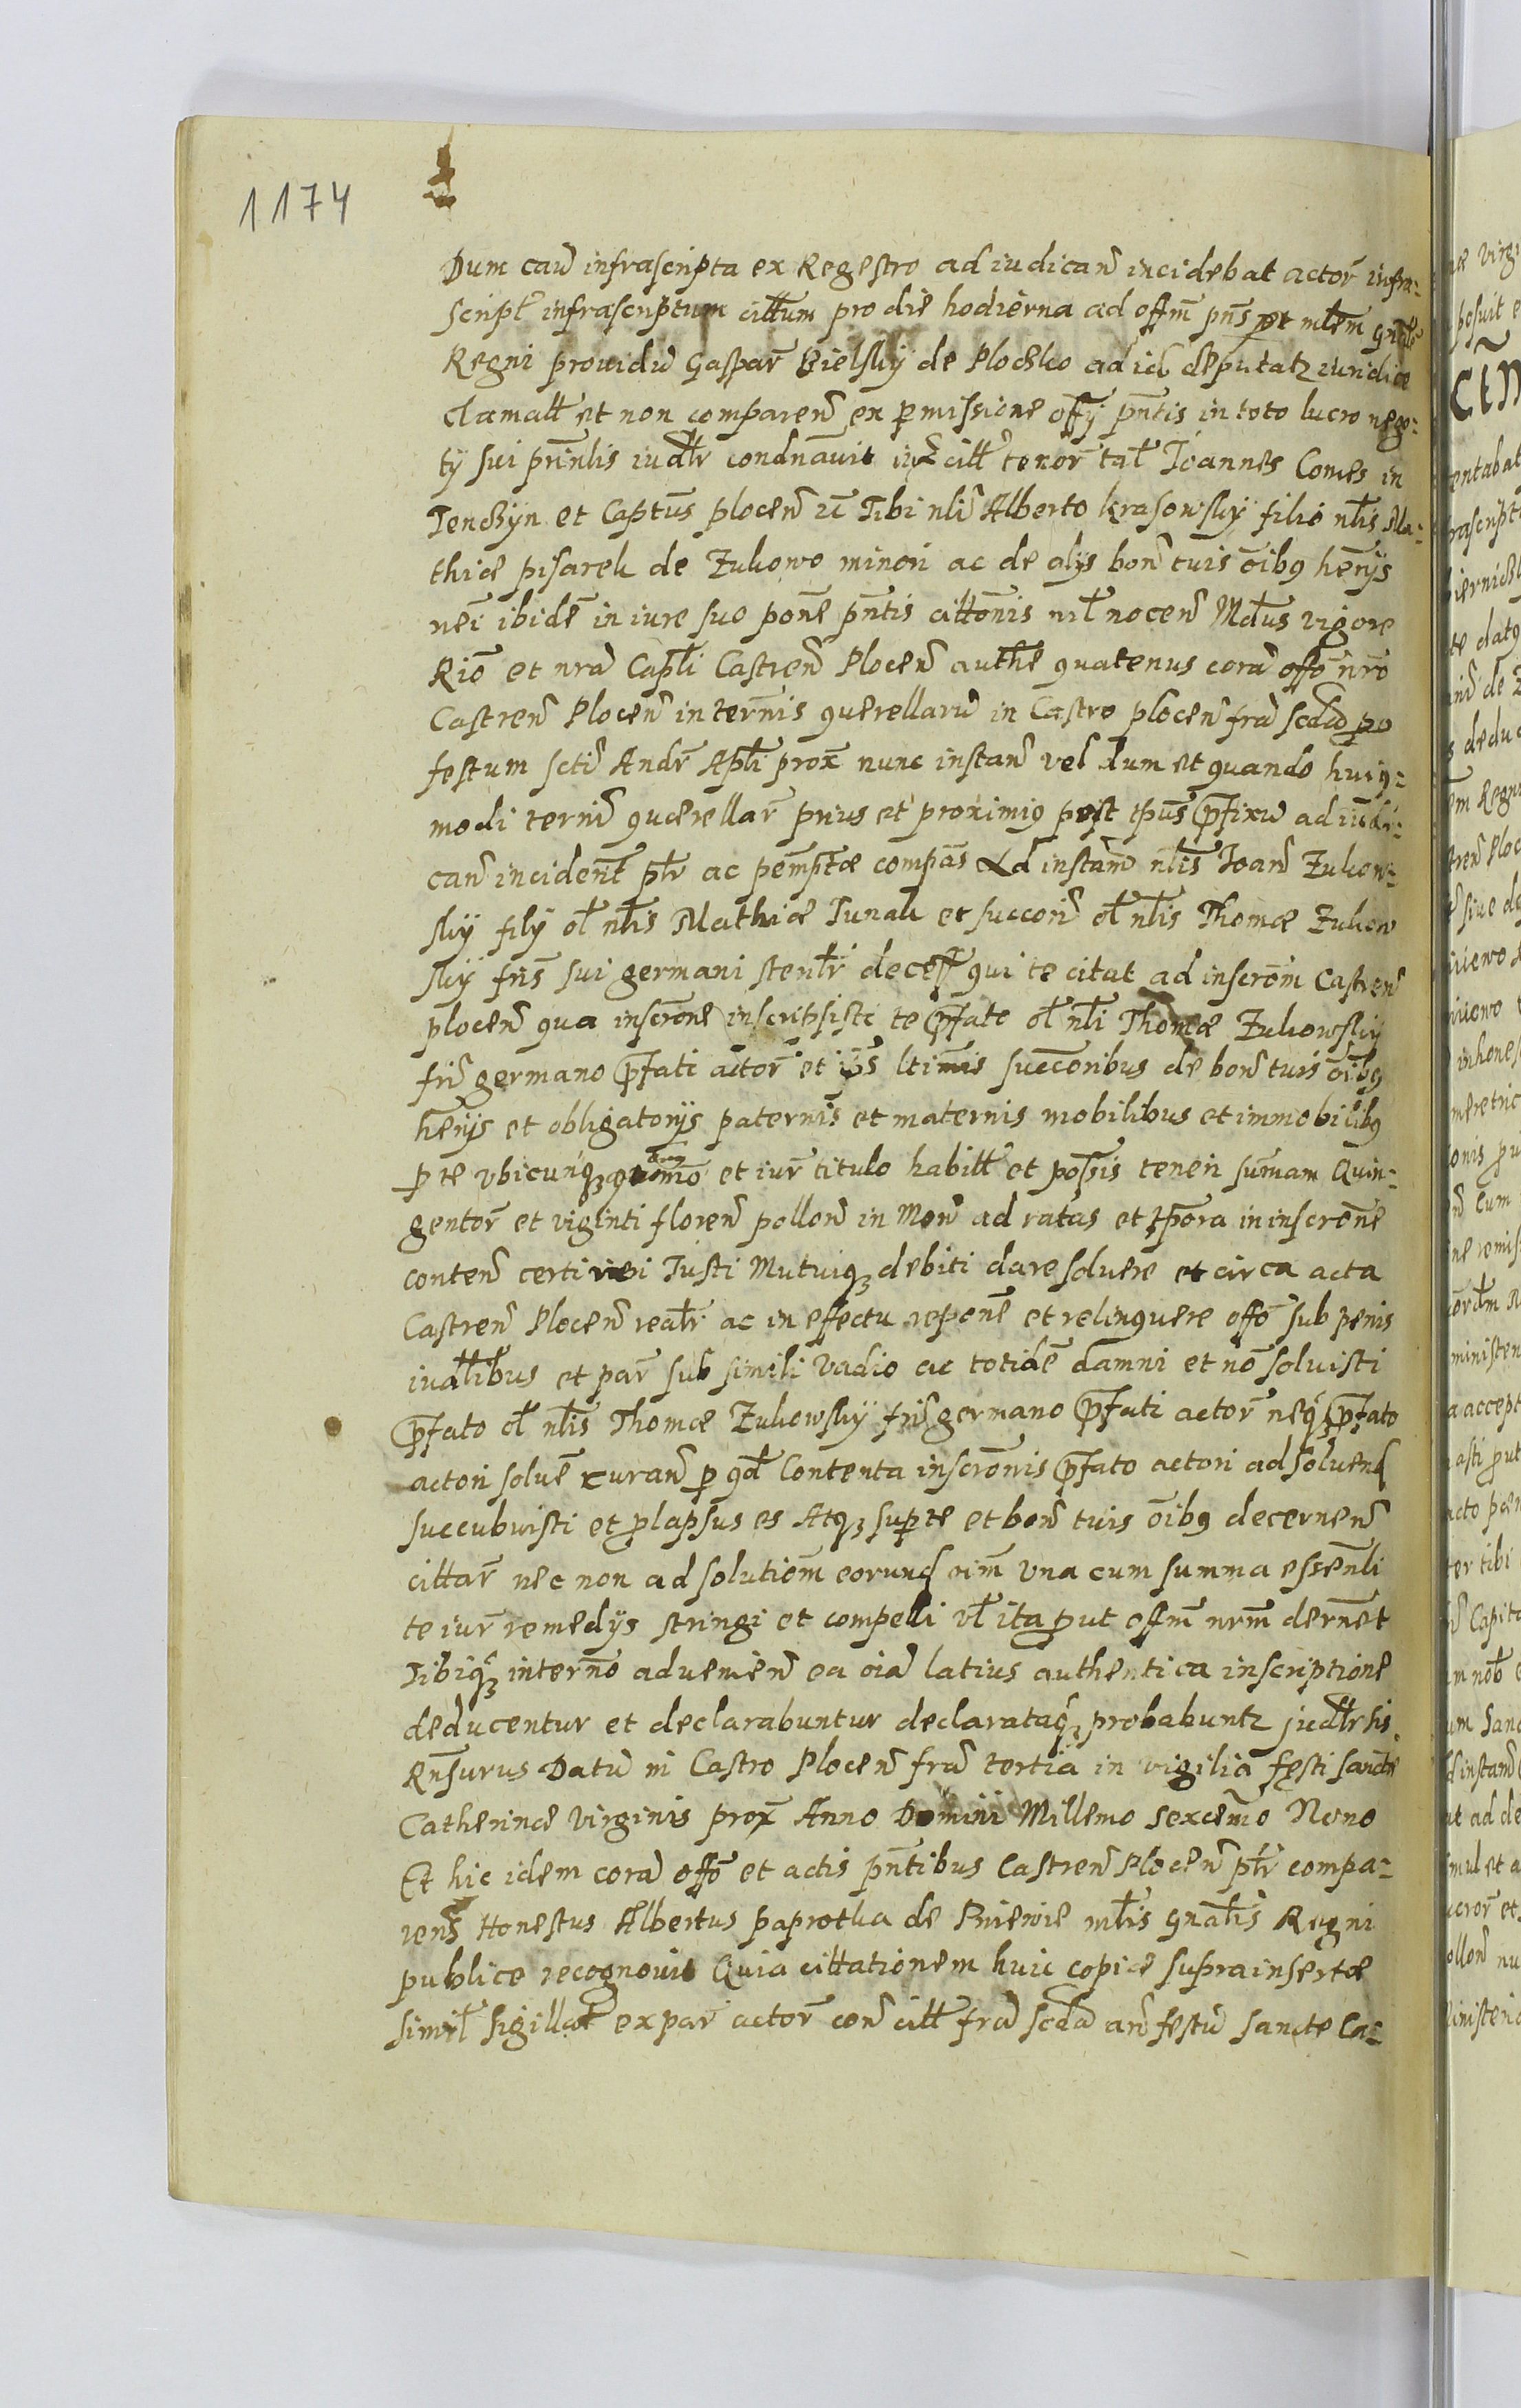 1174
Dum cau͂ infrascripta ex Regestro ad iudican͂ incidebat actor͂ infra-
script͂ infrascriptum cittum pro die hodierna ad offm͂ pn͂s per mlem͂ gn͂le
Regni prouidu͂ Gaspar͂ Bielsky de Ploczko ad id deputatz iuridice
Clamatt et non comparen͂ ex permissione offy pn͂tis in toto lucro nego-
ty sui prin͂lis iudlr condnauit iux citt tenor͂ tal͂ Joannes Comes in
Tenczyn et Captus plocen͂ zc͂ Tibi nli͂ Alberto Krasowsky filio nlis Ma-
thiæ pisarek de Zukowo minori ac de alys bon͂ tuis o͂ibq hen͂ys
nei͂ ibide͂ in iure suo pone͂ pn͂tis citton͂is nil͂ nocen͂ Md͂us vigore
Rio͂ et nra͂ Capli͂ Castren͂ Plocen͂ authe͂ quatenus cora͂ offo͂ nro͂
Castren͂ Plocen͂ in tern͂is querellaru͂ in Castro plocen͂ fra͂ scda͂ po
festum scti͂ Andr͂ Apli͂ prox͂ nunc instan͂ vel dum et quando huiq-
modi termi͂ querellar͂ prius et proximiq post tp͂us p͂fixu͂ ad iudi-
can͂ inciden͂t pl͂r ac pem͂ptæ compa͂s Ad instan͂ nlis͂ Joan͂ Zukow-
sky fily ol͂ nlis͂ Mathiæ Junak et succori͂ ol͂ nlis͂ Thomæ Zukow
sky fris͂ sui germani steril͂r decess͂ qui te citat ad inscrom͂ Castren͂
plocen͂ qua inscrone͂ inscripsisti te p͂fato ol͂ nli͂ Thomæ Zukowsky
fri͂ germano p͂fati actor͂ et ips͂ ltimis succoribus de bon͂ tuis o͂ibq
hen͂ys et obligatorys paternis et maternis mobilibus et immobilibq
p te vbicunqz quomo͂ et iur͂ titulo habitt et possis teneri sum͂am Quin-
gentor͂ et viginti floren͂ pollon͂ in Mon͂ ad ratas et tpora͂ in inscrone͂
conten͂ certi veri Justi Mutuiqz debiti dare soluere et circa acta
Castren͂ Plocen͂ real͂r ac in effectu repone͂ et relinquere offo͂ sub penis
iuallibus et par͂ sub simili vadio ac totide͂ damni et no͂ soluisti
p͂fato ol͂ nlis͂ Thomæ Zukowsky fri͂ germano p͂fati actor͂ neqz p͂fato
actori solue͂ curan͂ p qd͂ Contenta inscron͂is p͂fato actori ad soluend͂
succubuisti et plapsus es Atqz sup te et bon͂ tuis o͂ibq decernen͂
cittar͂ nec non ad solutiom͂ eorund͂ oim͂ vna cum summa essen͂li
te iur͂ remedys stringi et compelli vl͂ ita put offm͂ nrm͂ dern͂et
Tibiqz in tern͂o aduenien͂ ea oia͂ latius authentica inscriptione
deducentur et declarabuntur declarataqz probabuntz judlr sis
Rn͂surus Datu͂ in Castro Plocen͂ fra͂ tertia in vigilia festi sanctæ
Catherinæ virginis prox͂ Anno Domini Millemo sexcem͂o Nono
Et hic idem cora͂ offo͂ et actis pn͂tibus Castren͂ Plocen͂ pl͂r compa-
rens Honestus Albertus paprotka de mlis͂ gnalis͂ Regni
publice recognouit Quia cittationem huic copiæ suprainsertæ
simil͂ sigillat͂ ex par͂ actor͂ con͂ citt fra͂ scda͂ an͂ festu͂ sancte Ca-